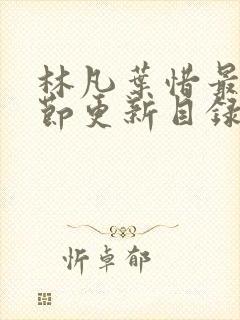 林凡葉惜最
節更新目録
忻卓郁